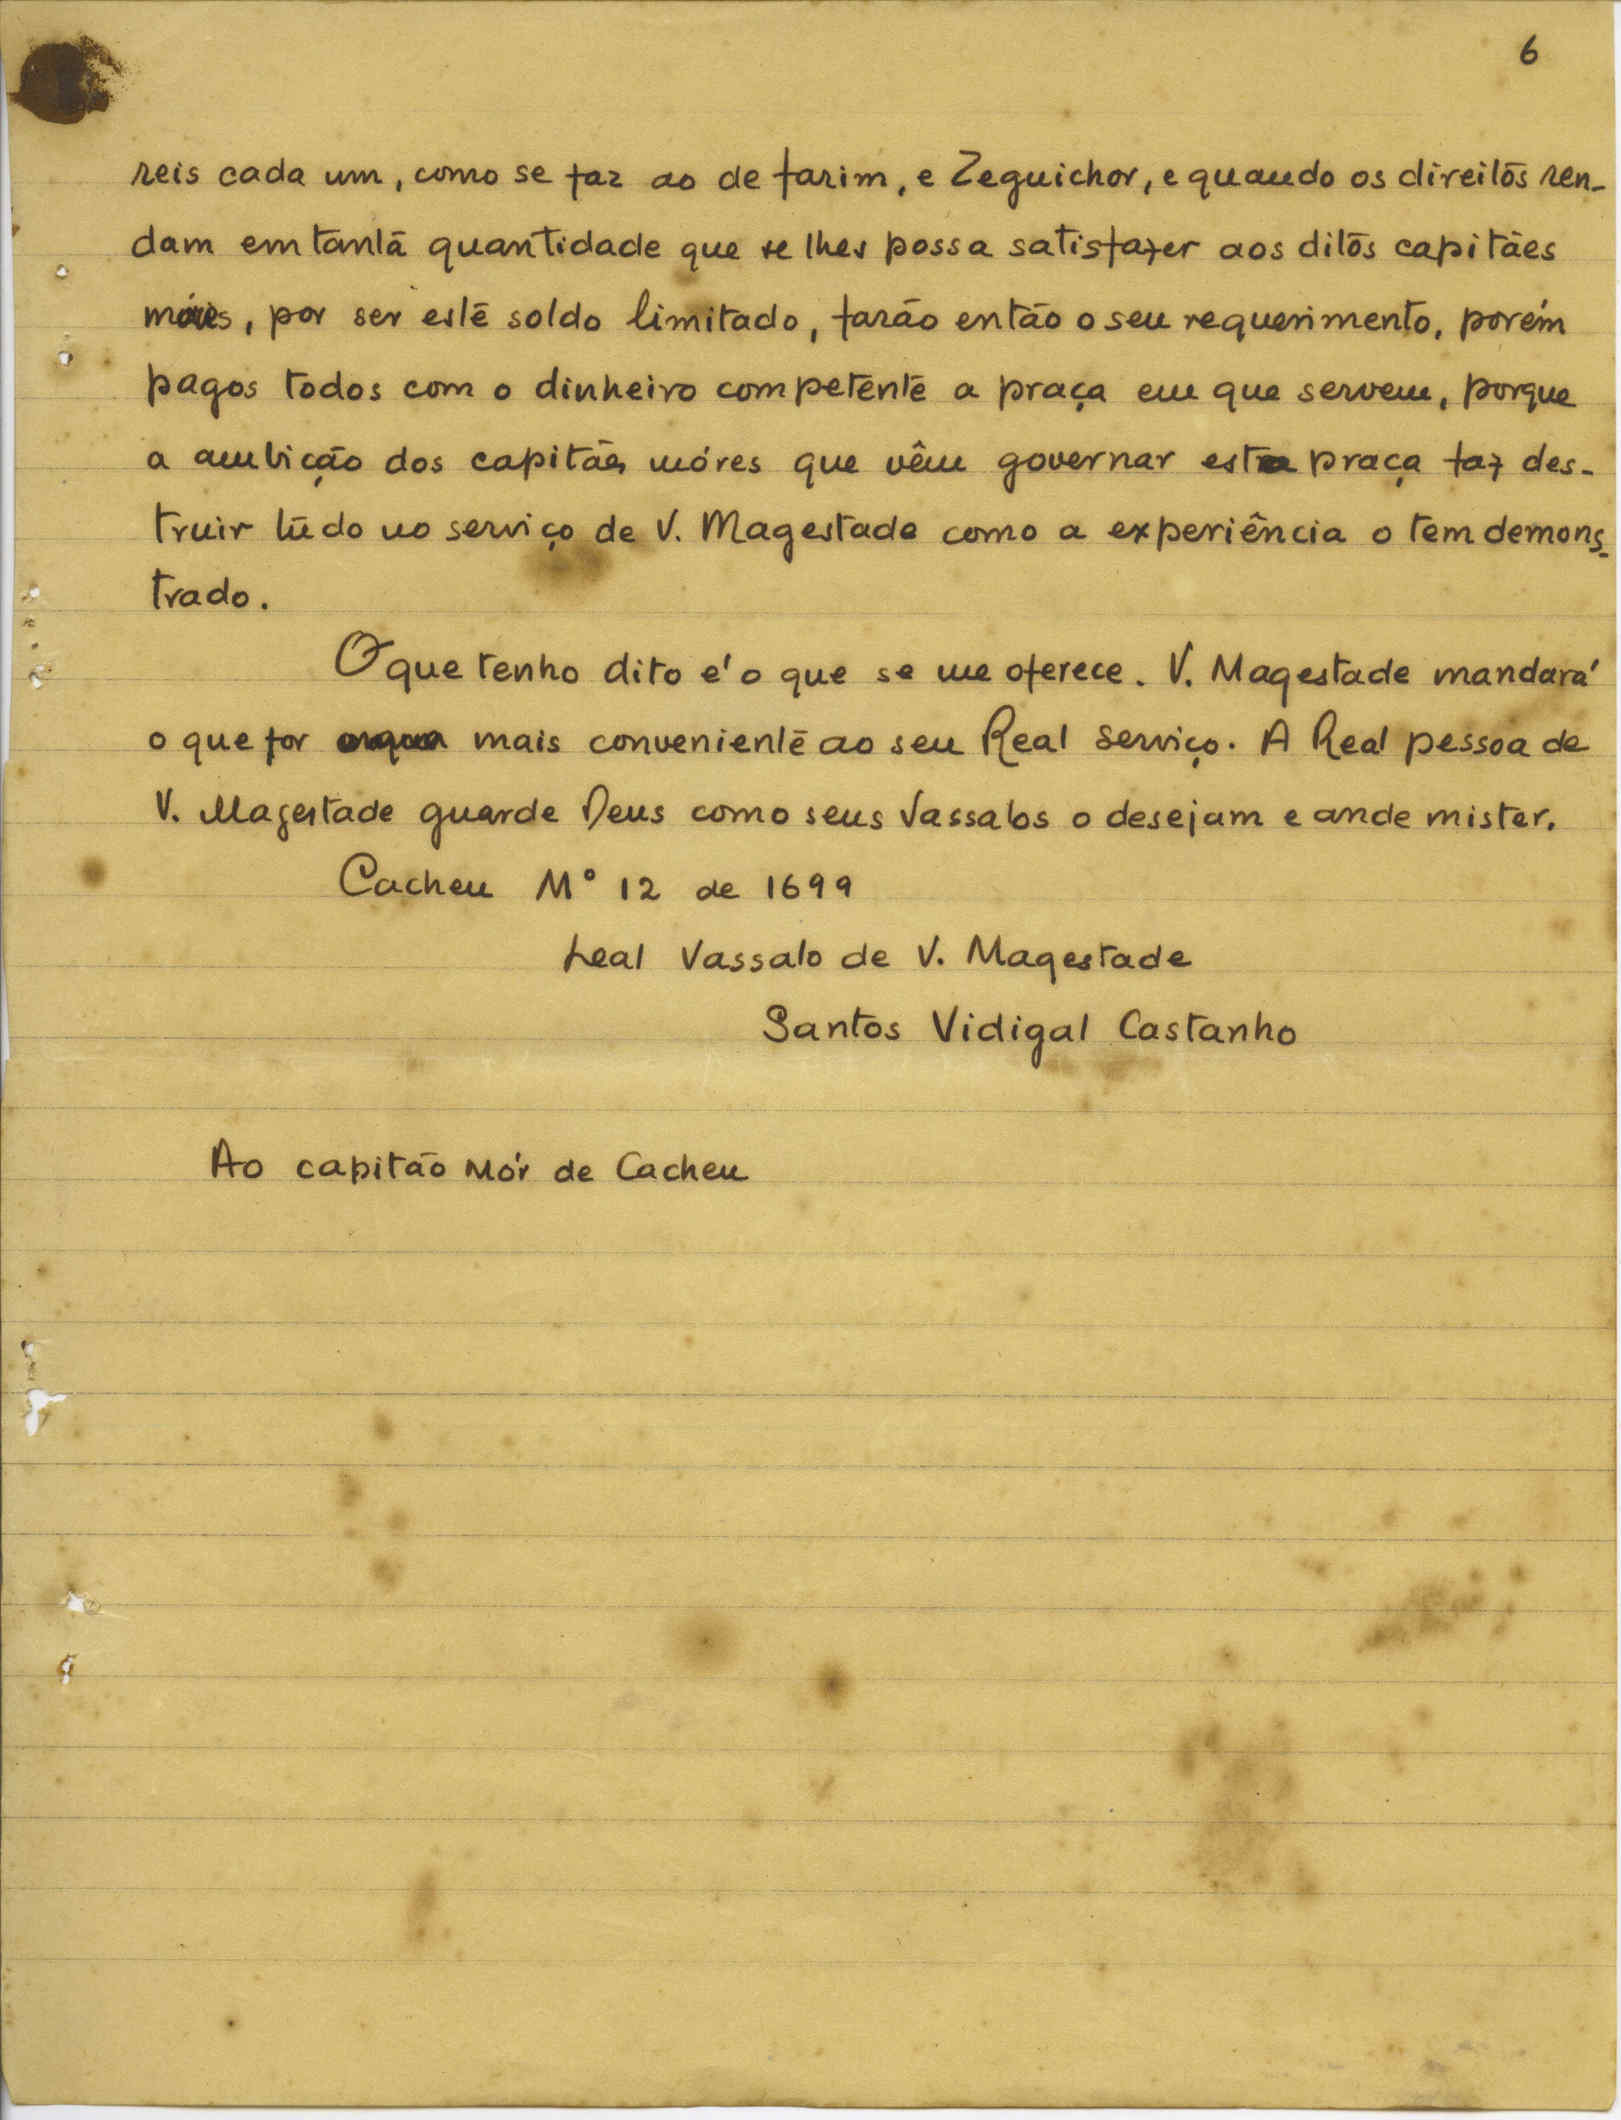 6
reis cada um, como se faz ao de farim, e Zeguichor, e quando os direitos ren-
dam em tanta quantidade que se lhes possa satisfazer aos ditos capitães
móres, por ser este soldo limitado, farão então o seu requerimento, porém
pagos todos com o dinheiro competente a praça em que servem, porque
a ambição dos capitães móres que vêm governar esta praça faz des-
truir tudo no serviço de V. Magestade como a experiência o tem demons-
trado.
O que tenho dito é o que se me oferece. V. Magestade mandará
o que for mais conveniente ao seu Real serviço. A Real pessoa de
V. Magestade guarde Deus como seus Vassalos o desejam e ande mister.
Cacheu Mº 12 de 1699
Leal Vassalo de V. Magestade
Santos Vidigal Castanho
Ao capitão Mór de Cacheu